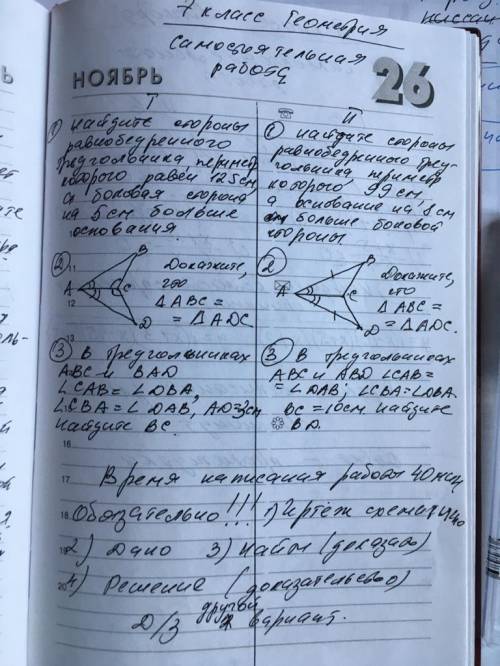 7 класс Геометрия
самостоятельная
работа
НОЯБРЬ
26
I
1) найдите стороны
равнобедренного
треугольника, периметр
которого равен 125 см,
а боковая сторона
на 5 см больше
основания.
2) Докажите,
что
△ABC =
= △ADC
A B C D
3) В треугольниках
ABC и BAD
∠CAB = ∠DBA,
∠CBA = ∠DAB, AD=3см
найдите BC.
II
1) найдите стороны
равнобедренного треу-
гольника, периметр
которого 99 см,
а основание на 8 см
больше боковой
стороны
2) Докажите,
что
△ABC =
= △ADC.
A B C D
3) В треугольниках
ABC и ABD ∠CAB=
= ∠DAB; ∠CBA=∠DBA
BC = 10 см найдите
BD.
11
12
13
16
17 Время написания работы 40 мин
18 Обязательно!!! 1) Чертёж
19 2) Дано 3) найти (доказать)
20 4) Решение (доказательство)
Д/З другой вариант.